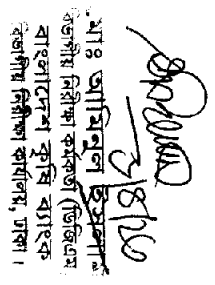 ৩/৪/২৬
মোঃ আমিনুল ইসলাম
বিভাগীয় নিরীক্ষা কর্মকর্তা (ডিজিএম)
বাংলাদেশ কৃষি ব্যাংক
বিভাগীয় নিরীক্ষা কার্যালয়, ঢাকা।